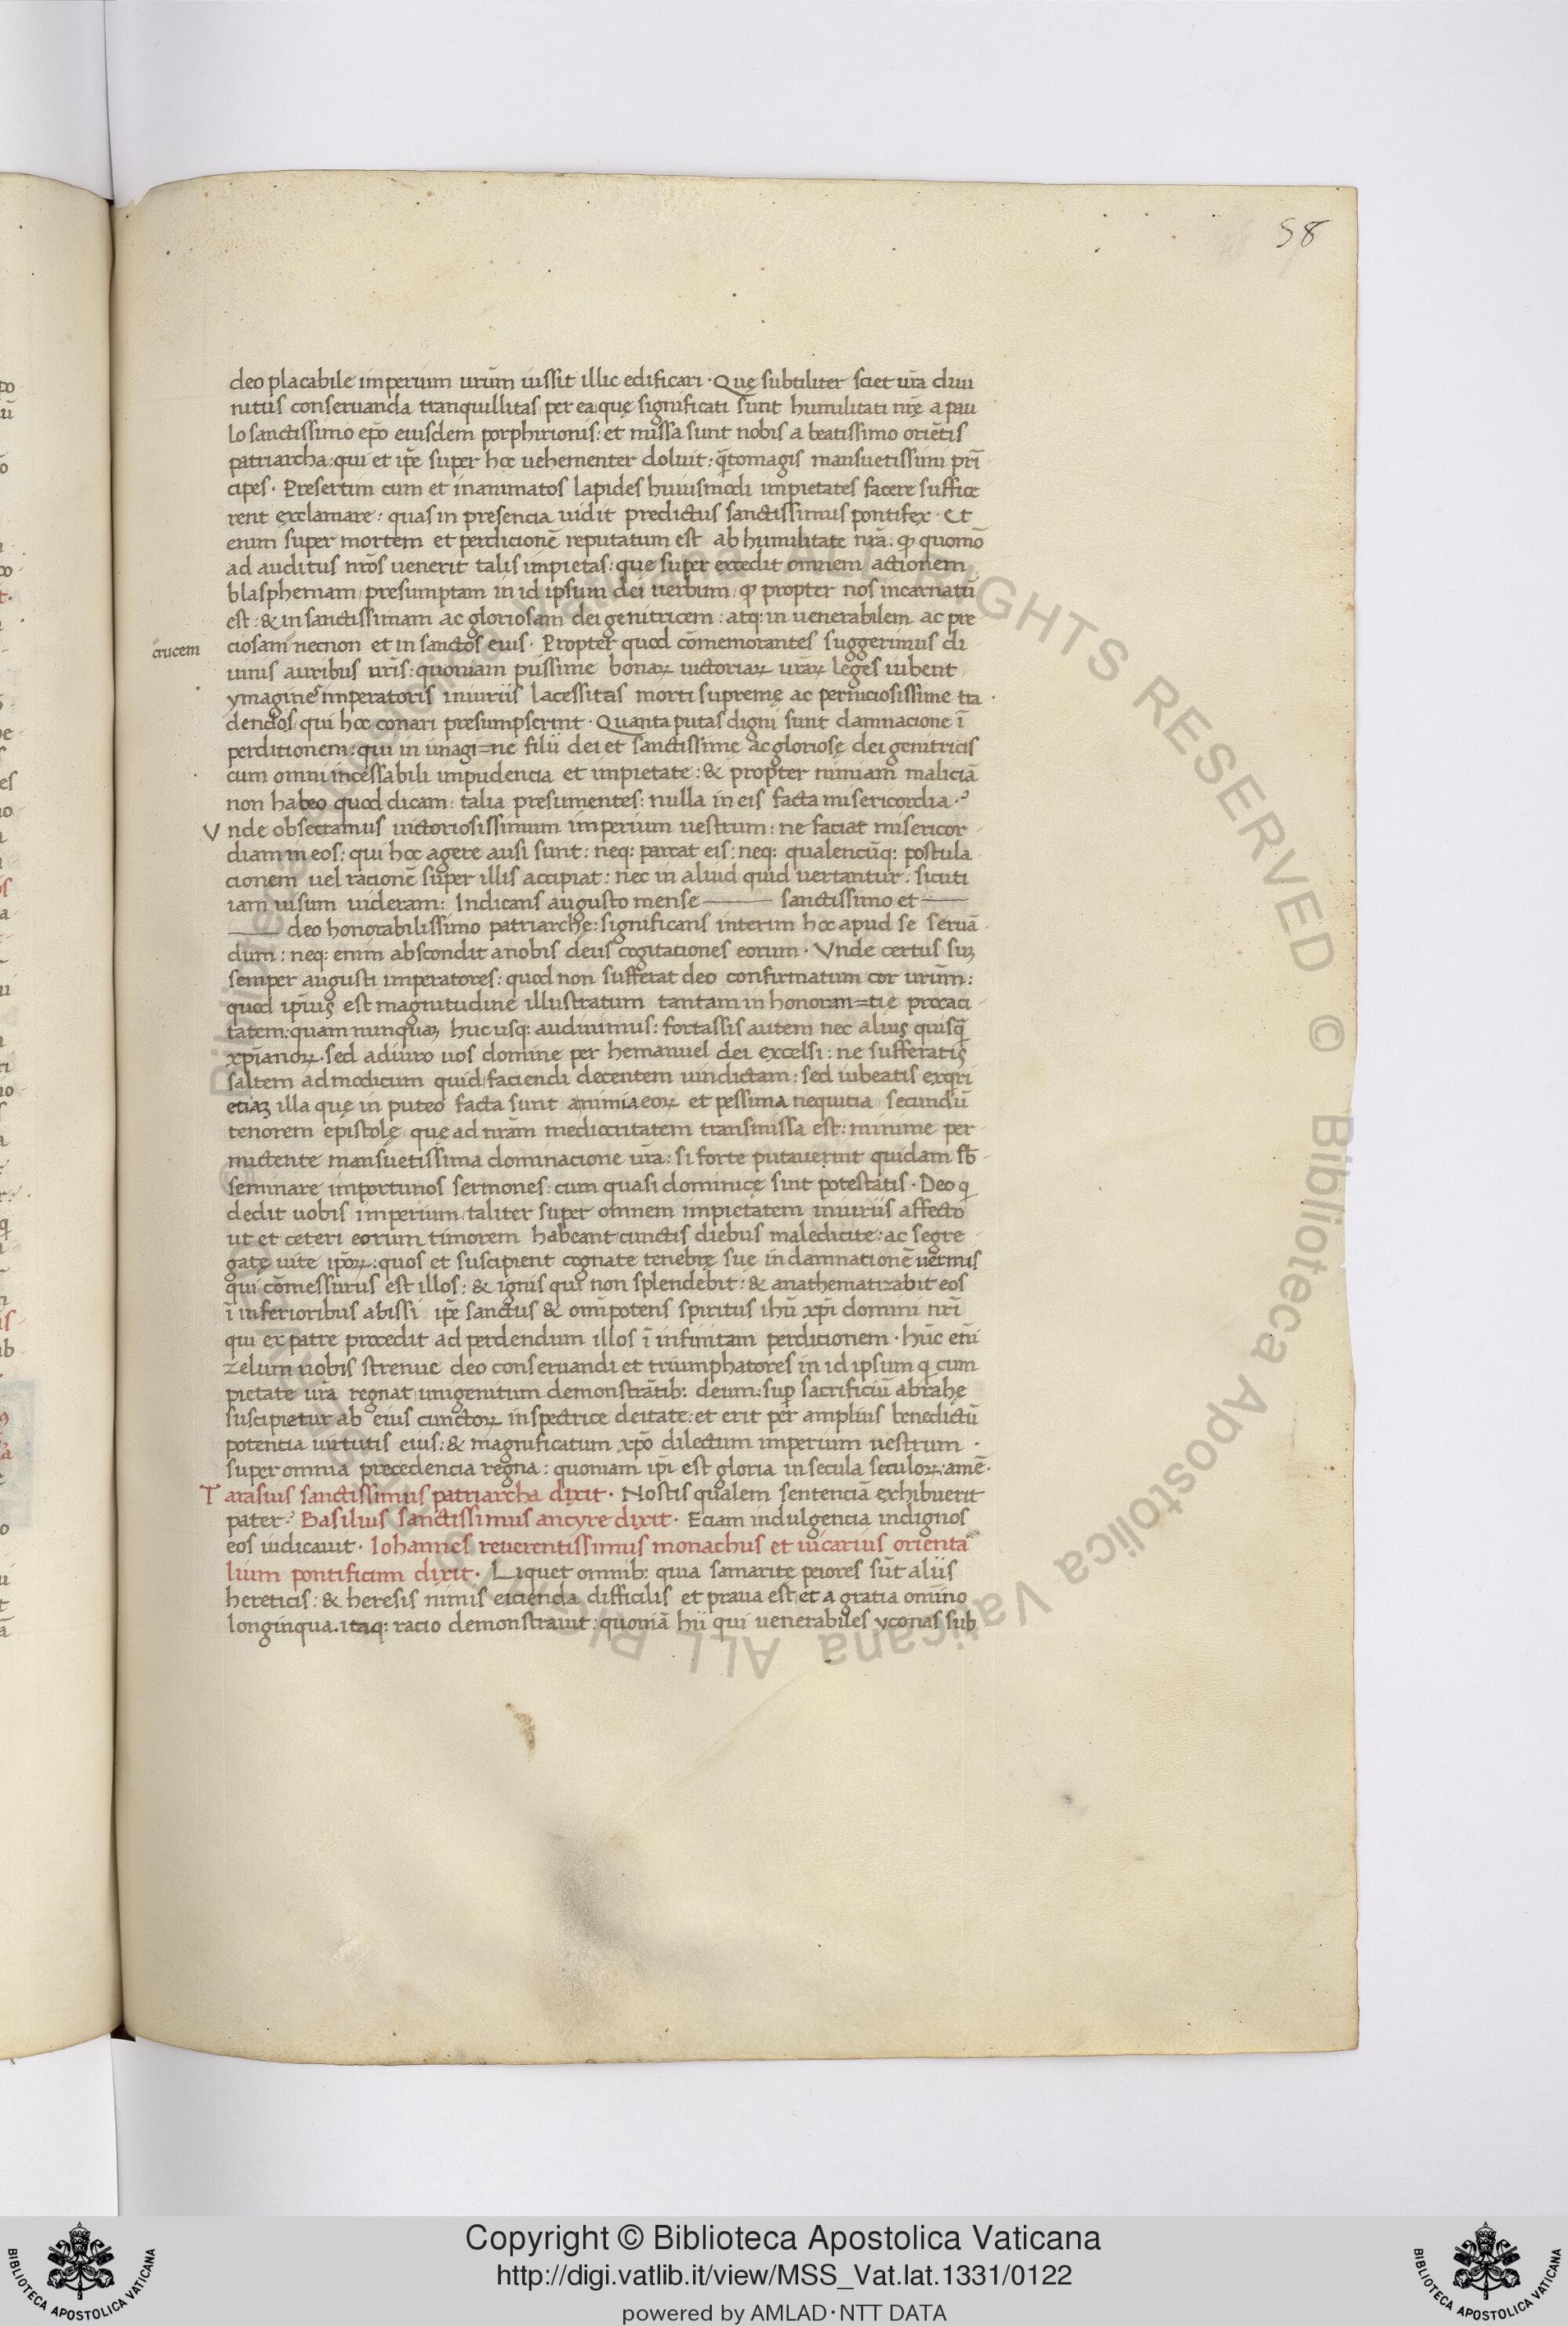 58
deo placabile imperium urūm iussit illic edificari · Quę subtiliter sciet ur̄a diui
nitus conseruanda tranquillitas per ea quę significati sunt humilitati nr̄ę a pau
lo sanctissimo ep̄o eiusdem porphirionis: et missa sunt nobis a beatissimo oriētis
patriarcha: qui et ip̄e super hoc uehementer doluit: q̄tomagis mansuetissimi prī
cipes · Presertim cum et inanimatos lapides huiusmodi impietates facere suffice
rent exclamare: quas in presencia uidit predictus sanctissimus pontifex · Et
enim super mortem et perdicionē reputatum est ab humilitate nr̄a: qp quomō
ad auditus nr̄os uenerit talis impietas: que super excedit omnem actionem
blasphemam presumptam in id ipsum dei uerbum qp propter nos incarnatū
est: & in sanctissimam ac gloriosam dei genitricem: atq: in uenerabilem ac pre
crucem
ciosam necnon et in sanctos eius · Propter quod cōmemorantes suggerimus di
uinis auribus ur̄is: quoniam piissime bonaꝝ uictoriaꝝ ur̄aꝝ leges iubent
ymagines imperatoris iniuriis lacessitas morti supremę ac perniciosissime tra
dendos qui hoc conari presumpserint · Quanta putas digni sunt damnacione ī
perditionem: qui in imagi=ne filii dei et sanctissime ac gloriosę dei genitricis
cum omni incessabili impudencia et impietate: & propter nimiam maliciā
non habeo quod dicam: talia presumentes: nulla in eis facta misericordia ·
Vnde obsecramus uictoriosissimum imperium uestrum: ne faciat misericor
diam in eos: qui hoc agere ausi sunt: neq: parcat eis: neq: qualencūq: postula
cionem uel racionē super illis accipiat: nec in aliud quid uertantur: sicuti
iam uisum uideram: Indicans augusto mense —— sanctissimo et ——
—— deo honorabilissimo patriarchę: significans interim hoc apud se seruā
dum: neq: enim abscondit a nobis deus cogitaciones eorum · Vnde certus suꝫ
semper augusti imperatores: quod non sufferat deo confirmatum cor urūm:
quod ip̄ius est magnitudine illustratum tantam in honoran=tie procaci
tatem: quam nunquaꝫ huc usq: audiuimus: fortassis autem nec alius quisq̄
xp̄ianoꝝ · sed adiuro uos domine per hemanuel dei excelsi: ne sufferatis
saltem ad modicum quid faciendi decentem uindictam: sed iubeatis exq̄ri
etiaꝫ illa que in puteo facta sunt animia eoꝝ et pessima nequitia secundū
tenorem epistolę que ad nr̄am mediocritatem transmissa est: minime per
mictente mansuetissima dominacione ur̄a: si forte putauerint quidam sb̄
seminare importunos sermones: cum quasi dominicę sint potestatis · Deo q
dedit uobis imperium taliter super omnem impietatem iniuriis affecto
ut et ceteri eorum timorem habeant cunctis diebus maledicite: ac segre
gatę uite ip̄oꝝ: quos et suscipient cognate tenebrę sue in damnationē uermis
qui cōmessurus est illos: & ignis qui non splendebit: & anathematizabit eos
ī inferioribus abissi ip̄e sanctus & omīpotens spiritus ihū xp̄i domini nr̄i
qui ex patre procedit ad perdendum illos ī infinitam perdicionem · hūc enī
zelum uobis strenue deo conseruandi et triumphatores in id ipsum q cum
pietate ur̄a regnat unigenitum demonstrātib: deum: sup sacrificiū abrahę
suscipietur ab eius cunctoꝝ inspectrice deitate: et erit per amplius benedictū
potentia uirtutis eius: & magnificatum xp̄o dilectum imperium uestrum ·
super omnia precedencia regna: quoniam ip̄i est gloria in secula seculoꝝ: amē ·
Tarasius sanctissimus patriarcha dixit · Nostis qualem sentenciā exhibuerit
pater · Basilius sanctissimus ancyre dixit · Eciam indulgencia indignos
eos iudicauit · Iohannes reuerentissimus monachus et uicarius orienta
lium pontificum dixit · Liquet omnib: quia samarite peiores sūt aliis
hereticis: & heresis nimis eicienda difficilis et praua est et a gratia omīno
longinqua. itaq: racio demonstrauit: quoniā hii qui uenerabiles yconas sub
© Biblioteca Apostolica Vaticana ALL RIGHTS RESERVED © Biblioteca Apostolica Vaticana ALL RIGHTS RESERVED
BIBLIOTECA APOSTOLICA VATICANA
Copyright © Biblioteca Apostolica Vaticana
http://digi.vatlib.it/view/MSS_Vat.lat.1331/0122
powered by AMLAD·NTT DATA
BIBLIOTECA APOSTOLICA VATICANA